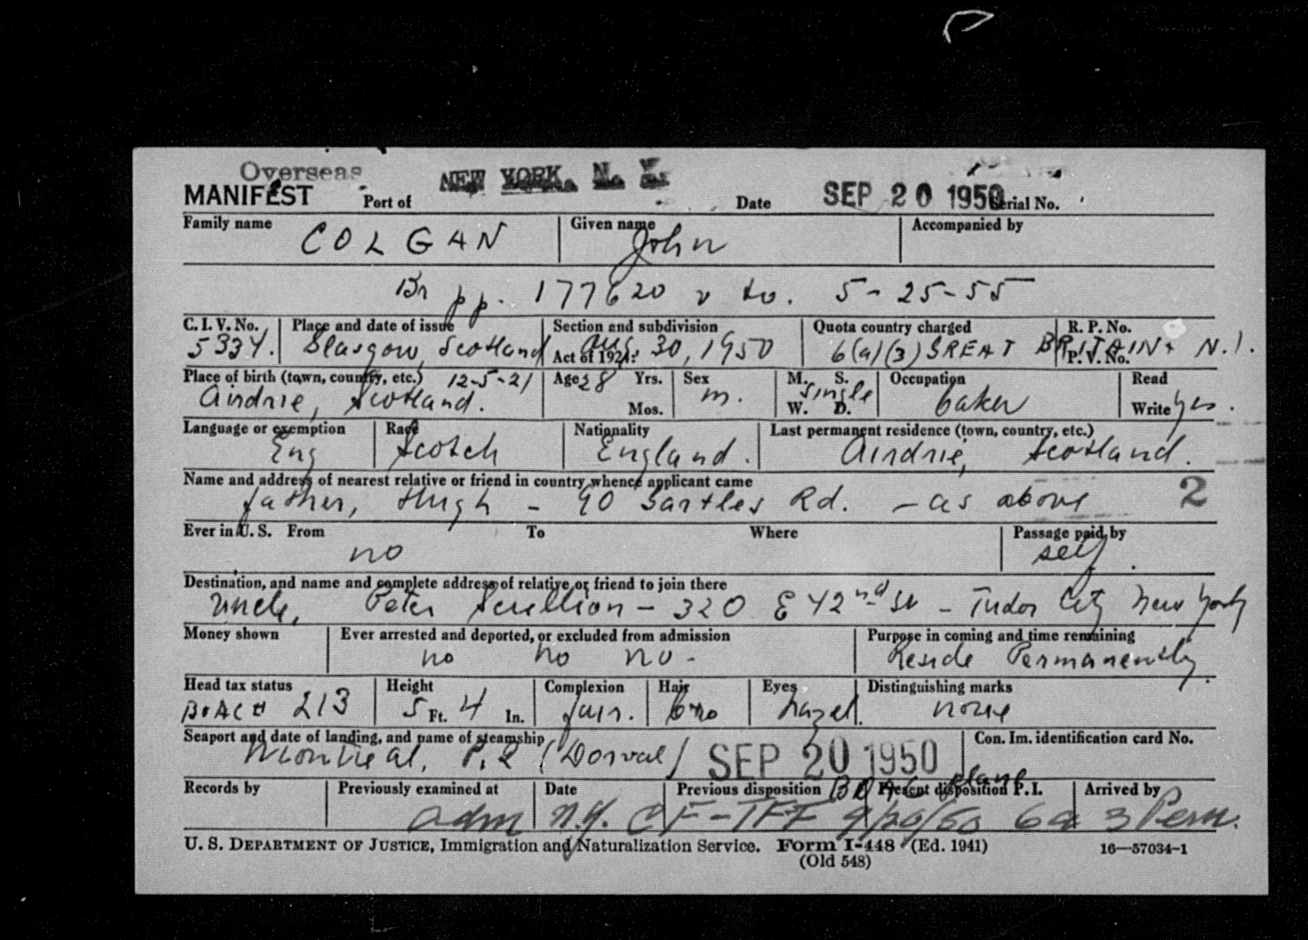 Overseas
MANIFEST Port of NEW YORK, N. Y. Date SEP 20 1950 Serial No.
Family name COLGAN Given name John Accompanied by
Br pp. 177620 v to. 5-25-55
C. I. V. No. Place and date of issue Section and subdivision Quota country charged R. P. No.
5334. Glasgow, Scotland Act of 1924: Aug. 30, 1950 6(a)(3) GREAT BRITAIN + N.I. P. V. No.
Place of birth (town, country, etc.) 12-5-21 Age 28 Yrs. Sex M. S. Occupation Read
Airdrie, Scotland. Mos. m. single W. D. baker Write yes.
Language or exemption Race Nationality Last permanent residence (town, country, etc.)
Eng Scotch England. Airdrie, Scotland.
Name and address of nearest relative or friend in country whence applicant came
father, Hugh - 90 Rd. - as above 2
Ever in U. S. From To Where Passage paid by
no self.
Destination, and name and complete address of relative or friend to join there
Uncle, Peter - 320 E 42nd St - Tudor City New York
Money shown Ever arrested and deported, or excluded from admission Purpose in coming and time remaining
no no no - Reside Permanently.
Head tax status Height Complexion Hair Eyes Distinguishing marks
BOAC # 213 5 Ft. 4 In. fair. bro hazel. none
Seaport and date of landing, and name of steamship Con. Im. identification card No.
Montreal, P.Q (Dorval) SEP 20 1950
BOAC plane
Records by Previously examined at Date Previous disposition Present disposition P. I. Arrived by
adm N.Y. CF-TFF 9/20/50 6a 3 Perm.
U. S. DEPARTMENT OF JUSTICE, Immigration and Naturalization Service. Form I-448 (Ed. 1941) 16—57034-1
(Old 548)